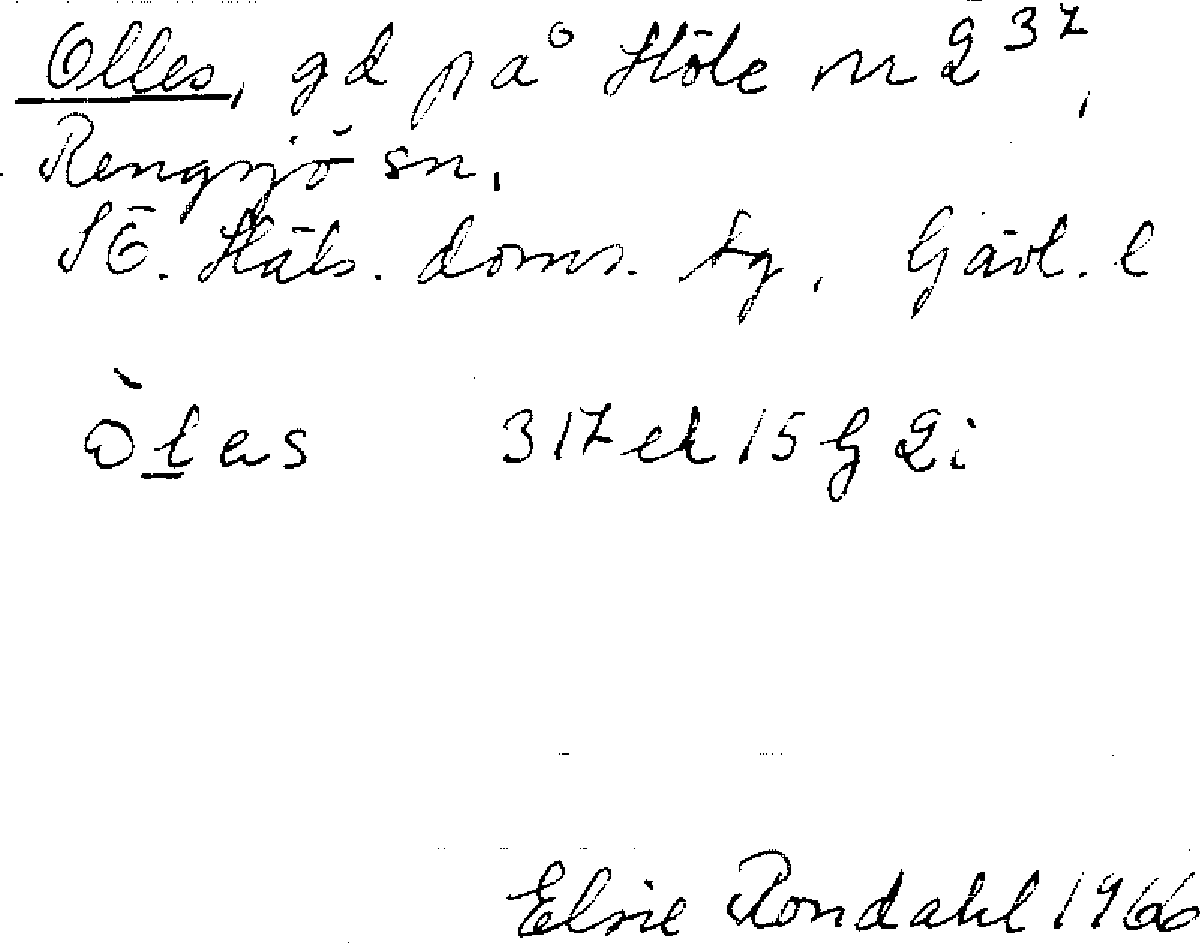 Olles, gd på Höle nr 2³⁷,
Rengsjö sn.
SÖ. Häls. doms. tg. Gävl. l
317 ek 15 G 2i
Elsie Rondahl 1966